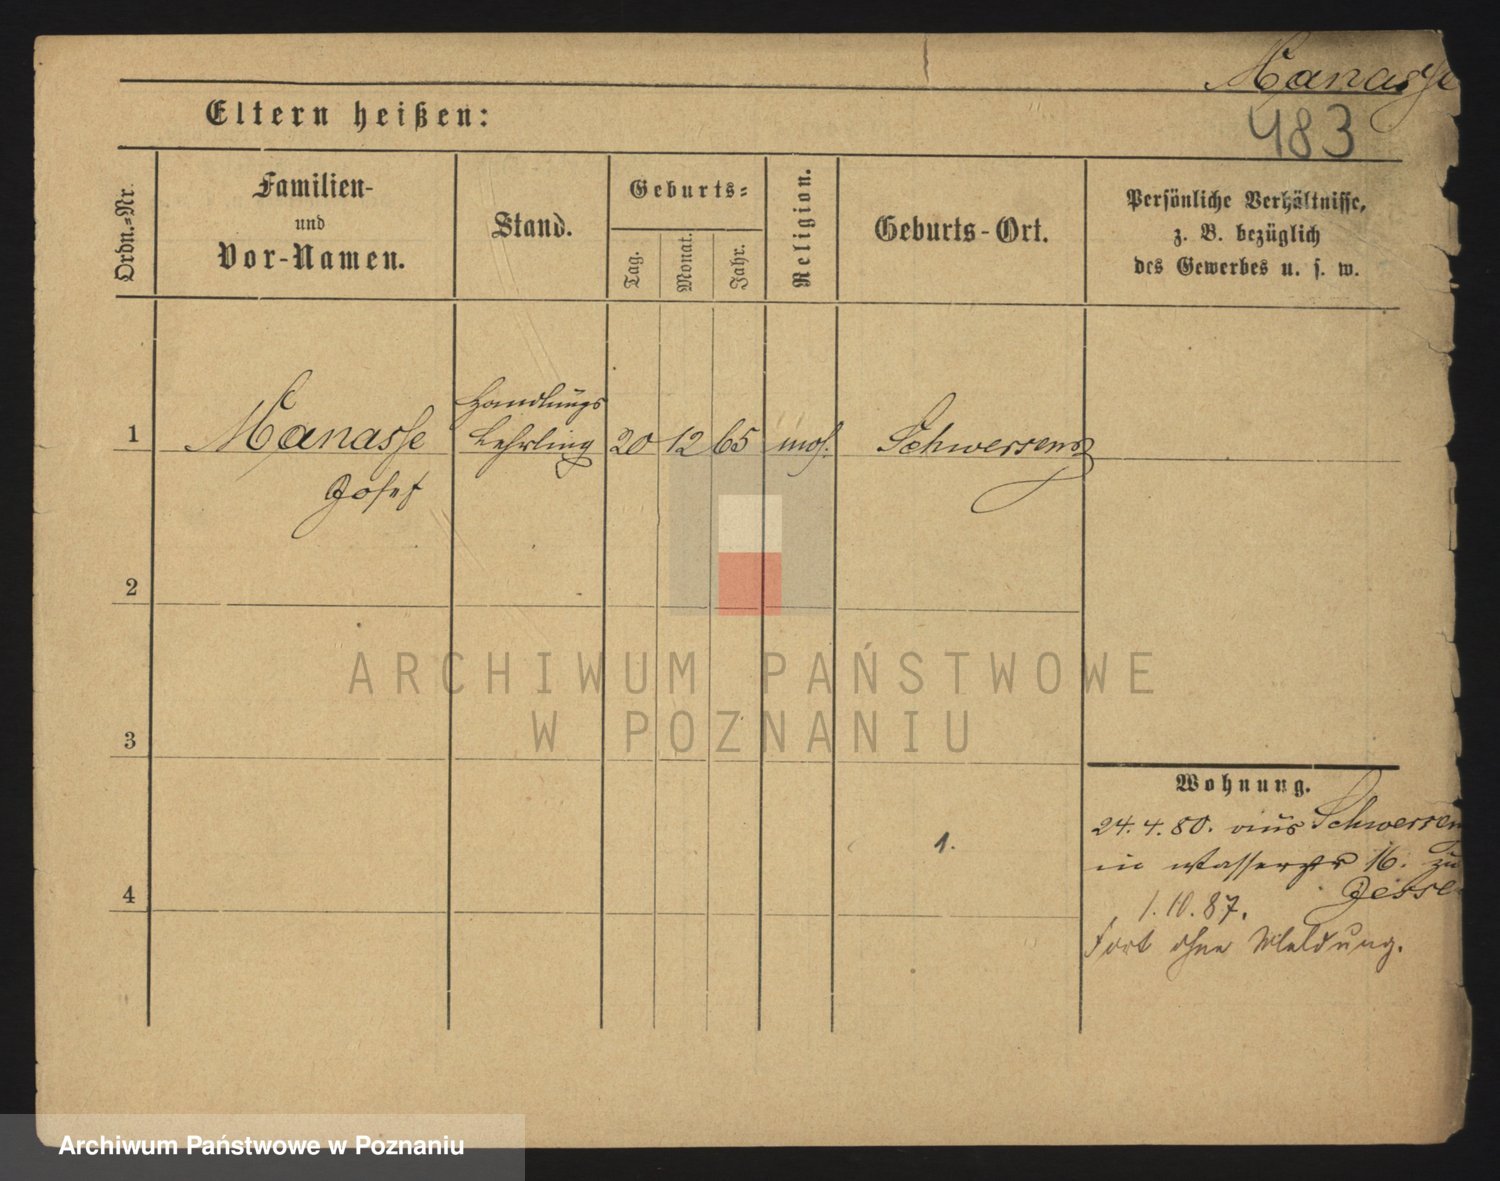 Manasse
483
Eltern heißen:
Ordn.=Nr.
Familien-
und
Vor-Namen.
Stand.
Geburts=
Tag.
Monat.
Jahr.
Religion.
Geburts-Ort.
Persönliche Verhältnisse,
z. B. bezüglich
des Gewerbes u. s. w.
1 Manasse Handlungs Lehrling 20 12 65 mos. Schwersenz
Josef
2
3
4
1.
Wohnung.
24. 4. 80. aus Schwersenz
in Wasserstr 16. zu
1. 10. 87.
Fort ohne Meldung.
ARCHIWUM PAŃSTWOWE
W POZNANIU
Archiwum Państwowe w Poznaniu